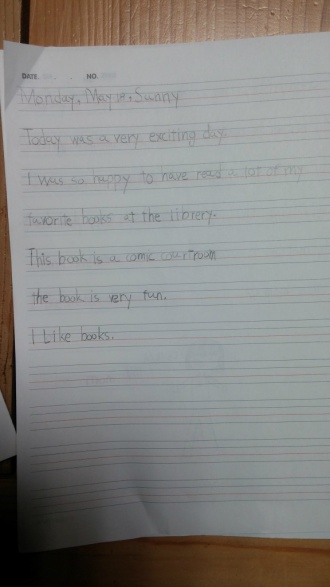 DATE. . . NO.
Monday, May 18, Sunny
Today was a very exciting day.
I was so happy to have read a lot of my
favorite books at the librery.
This book is a comic courtroom
the book is very fun.
I Like books.